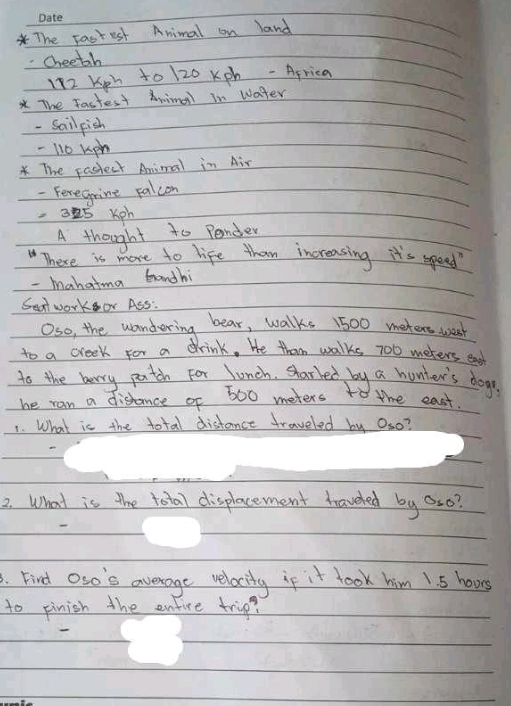 Date
* The Fastest Animal on land
- Cheetah
112 Kph to 120 Kph - Africa
* The Fastest Animal in Water
- Sailfish
- 110 kph
* The fastest Animal in Air
- Feregrine Falcon
- 325 Kph
A thought to Ponder
"There is more to life than increasing it's speed"
- Mahatma Gandhi
Seatworks or Ass:
Oso, the wandering bear, walks 1500 meters west
to a creek for a drink. He than walks 700 meters east
to the berry patch for lunch. Started by a hunter's dogs,
he ran a distance of 500 meters to the east.
1. What is the total distance traveled by Oso?
-
2. What is the total displacement traveled by Oso?
-
3. Find Oso's average velocity if it took him 1.5 hours
to finish the entire trip?
-